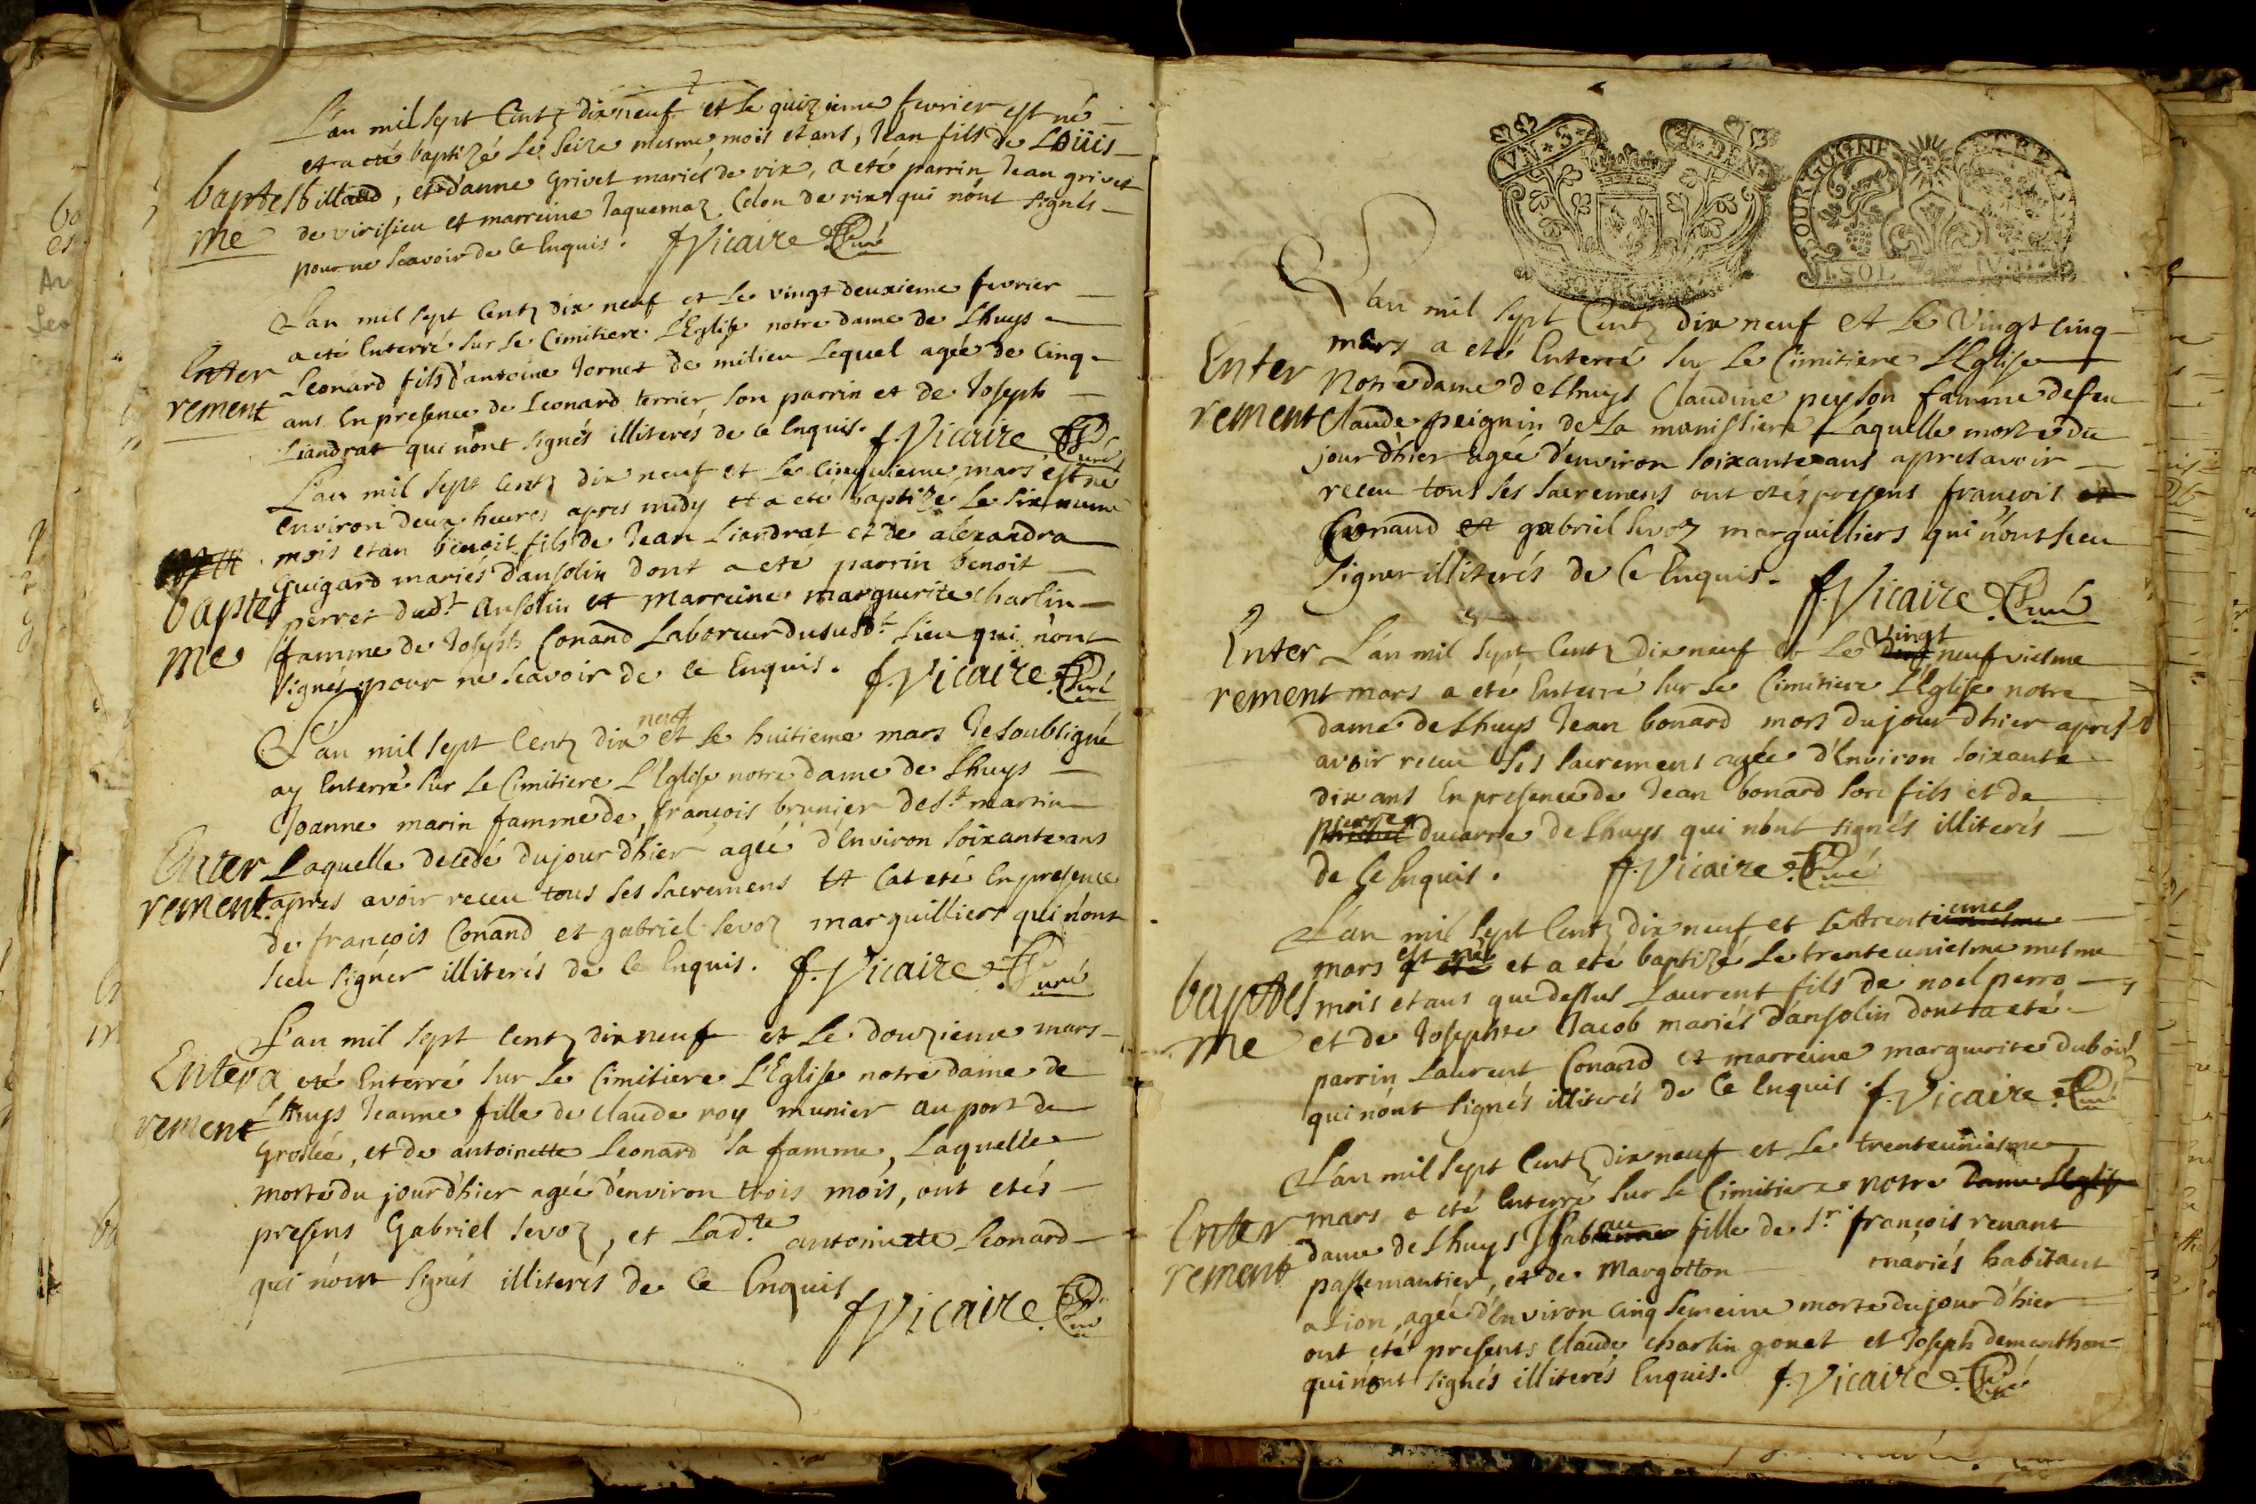 L'an mil sept Centz dix neuf et le quizieme fevrier est né
et a eté baptizé le seize mesme mois et ans, Jean fils de Loüis
baptes billaud, et d'anne Grivet mariés de vix, a eté parrin Jean grivet
me de virisieu et marreine Jaquemaz Colon de vix qui nónt signés
pour ne scavoir de ce Enquis. f Vicaire Curé
L'an mil sept Centz dix neuf et le vingt deuxieme fevrier
a eté Enterré sur le Cimitiere L'Eglise notre dame de Lhuys
Enter Leonard fils d'antoine Jornet de milieu Lequel agée de Cinq
rement ans En presence de Leonard terrier son parrin et de Joseph
Liandrat qui nónt signés illiterés de ce Enquis. f. Vicaire Curé
L'an mil sept Centz dix neuf et le Cinquieme mars est né
Environ deux heures apres midy et a eté baptizé le six meme
mois et an benoit fils de Jean Liandrat et de alexandra
Guigard mariés d'ansolin dont a eté parrin benoit
baptes perret dudt. Ansolin et Marreine marguerite charlin
me famme de Joseph Conand Laboreur dususdt. Lieu qui nónt
signés pour ne scavoir de ce Enquis. f. Vicaire Curé
L'an mil sept Centz dix neuf et le huitieme mars Je soubsigné
ay Enterré sur le Cimitiere L'Eglise notre dame de Lhuys
Joanne marin famme de françois brunier de St. martin
Enter Laquelle decedé du jour d'hier agée d'Environ soixante ans
rement apres avoir receu tous ses sacremens et cat eté En presence
de françois Conand et gabriel Sevoz marguilliers qui nónt
sceu signer illiterés de ce Enquis. f. Vicaire Curé
L'an mil sept Centz dix neuf et le douzieme mars
Enter a eté Enterré sur le Cimitiere L'Eglise notre dame de
rement Lhuys Jeanne fille de Claude roy munier au port de
Groslée, et de antoinette Leonard sa famme, Laquelle
morte du jour d'hier agée d'environ trois mois, ont etés
presens Gabriel Sevoz, et Ladte. antoinette Leonard
qui nónt signés illiterés de ce Enquis
f Vicaire Curé
BOURGOGNE
L'an mil sept Centz dix neuf et le Vingt cinq
mars a eté Enterré sur le Cimitiere L'Eglise
Enter Notre dame de Lhuys Claudine peyson famme de feu
rement Claude peignin de la manissiere Laquelle morte du
jour d'hier agée d'environ soixante ans apres avoir
receu tous ses sacremens ont etés presens françois et
Conand et gabriel Sevoz marguilliers qui nónt sceu
signer illiterés de ce Enquis. f. Vicaire Curé
Enter L'an mil sept Centz dix neuf et le vingt neufviesme
rement mars a eté Enterré sur le Cimitiere L'Eglise notre
dame de Lhuys Jean bonard mort du jour d'hier apres
avoir receu ses sacremens agée d'Environ soixante
dix ans En presence de Jean bonard son fils et de
pierre ducarre de Lhuys qui nónt signés illiterés
de ce Enquis. f. Vicaire Curé
L'an mil sept Centz dix neuf et le trentieme
mars est né et a eté baptizé le trente uniesme mesme
baptes mois et ans que dessus Laurent fils de noel perro
me et de Josephte Jacob mariés d'ansolin dont a eté
parrin Laurent Conand et marreine marguerite dubois
qui nónt signés illiterés de ce Enquis. f. Vicaire Curé
L'an mil sept Centz dix neuf et le trente uniesme
mars a eté Enterré sur le Cimitiere notre dame L'Eglise
Enter dame de Lhuys Isabeau fille de Sr. françois renant
rement passemantier, et de Margotton mariés habitant
a Lion, agée d'Environ cinq semeine morte du jour d'hier
ont eté presents Claude charlin gonet et Joseph dementhon
qui nónt signés illiterés Enquis. f. Vicaire Curé